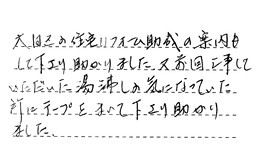 大田区の住宅リフォーム助成の案内も
して下さり助かりました。又前回工事して
いただいた湯沸しの気になっていた
所にテープをまいて下さり助かり
ました。